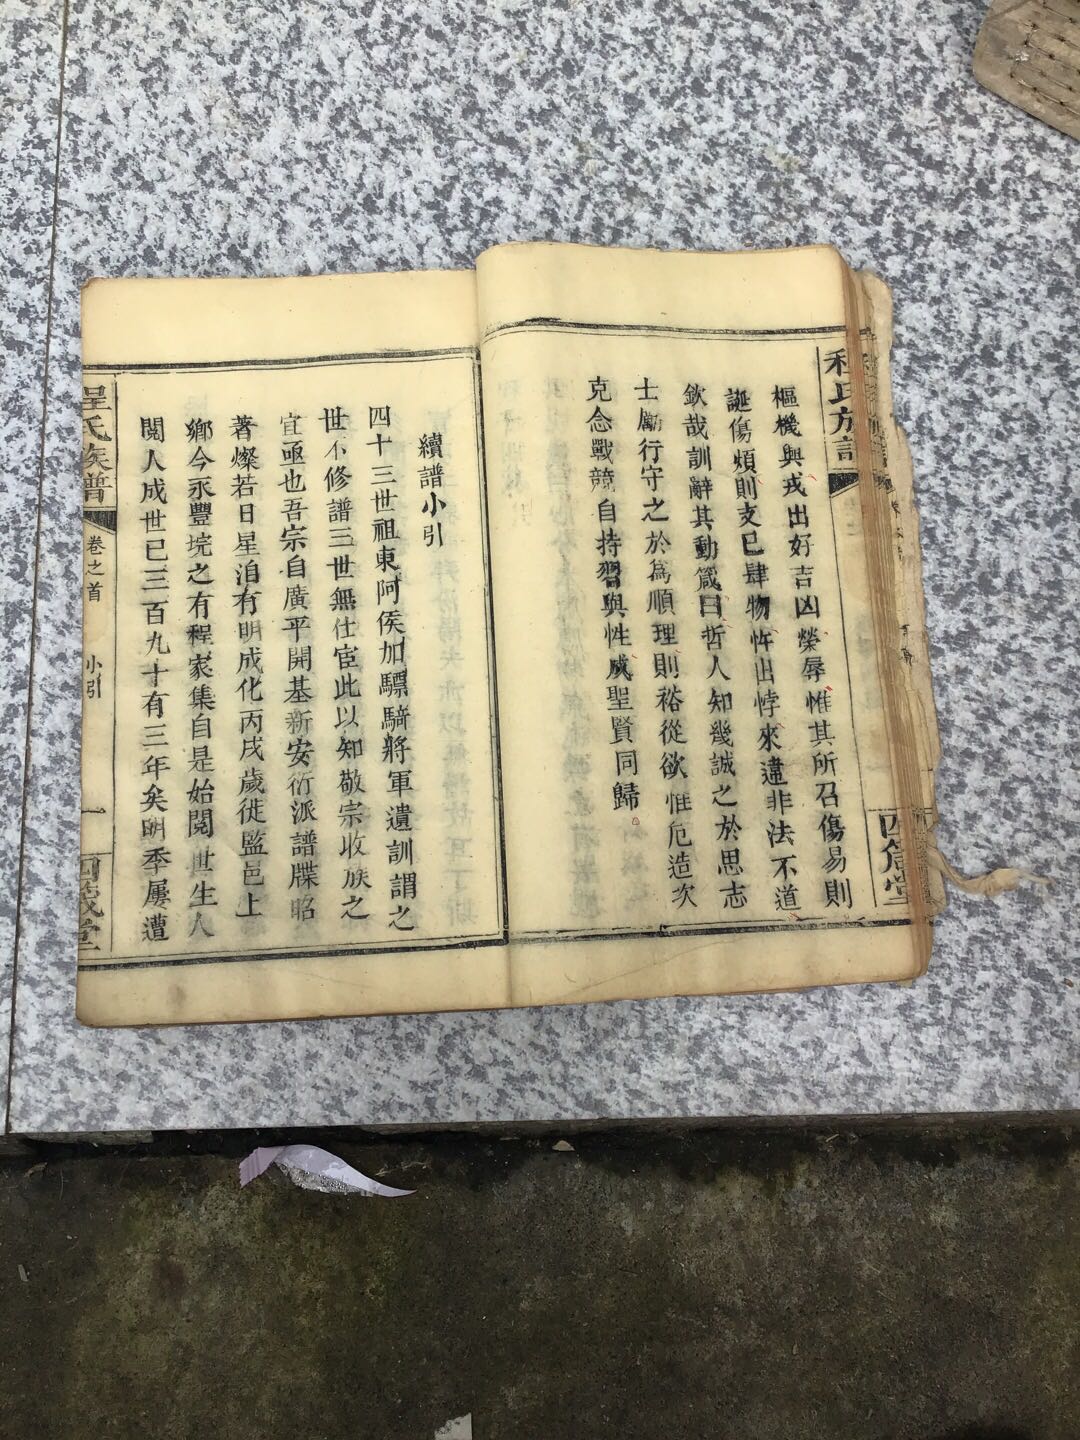 程氏族譜
四箴堂
樞機興戎出好吉凶榮辱惟其所召傷易則
誕傷煩則支已肆物忤出悖來違非法不道
欽哉訓辭其動箴曰哲人知幾誠之於思志
士勵行守之於為順理則裕從欲惟危造次
克念戰兢自持習與性成聖賢同歸
續譜小引
四十三世祖東阿侯加驃騎將軍遺訓謂之
世不修譜三世無仕宦此以知敬宗收族之
宜亟也吾宗自廣平開基新安衍派譜牒昭
著燦若日星洎有明成化丙戌歲徙監邑上
鄉今永豐垸之有程家集自是始閱世生人
閱人成世已三百九十有三年矣明季屢遭
程氏族譜
卷之首
小引
一
四箴堂